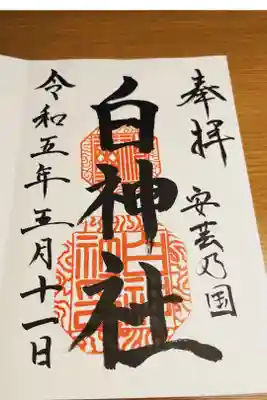 奉拝
安芸乃国
白神社
令和五年五月十一日